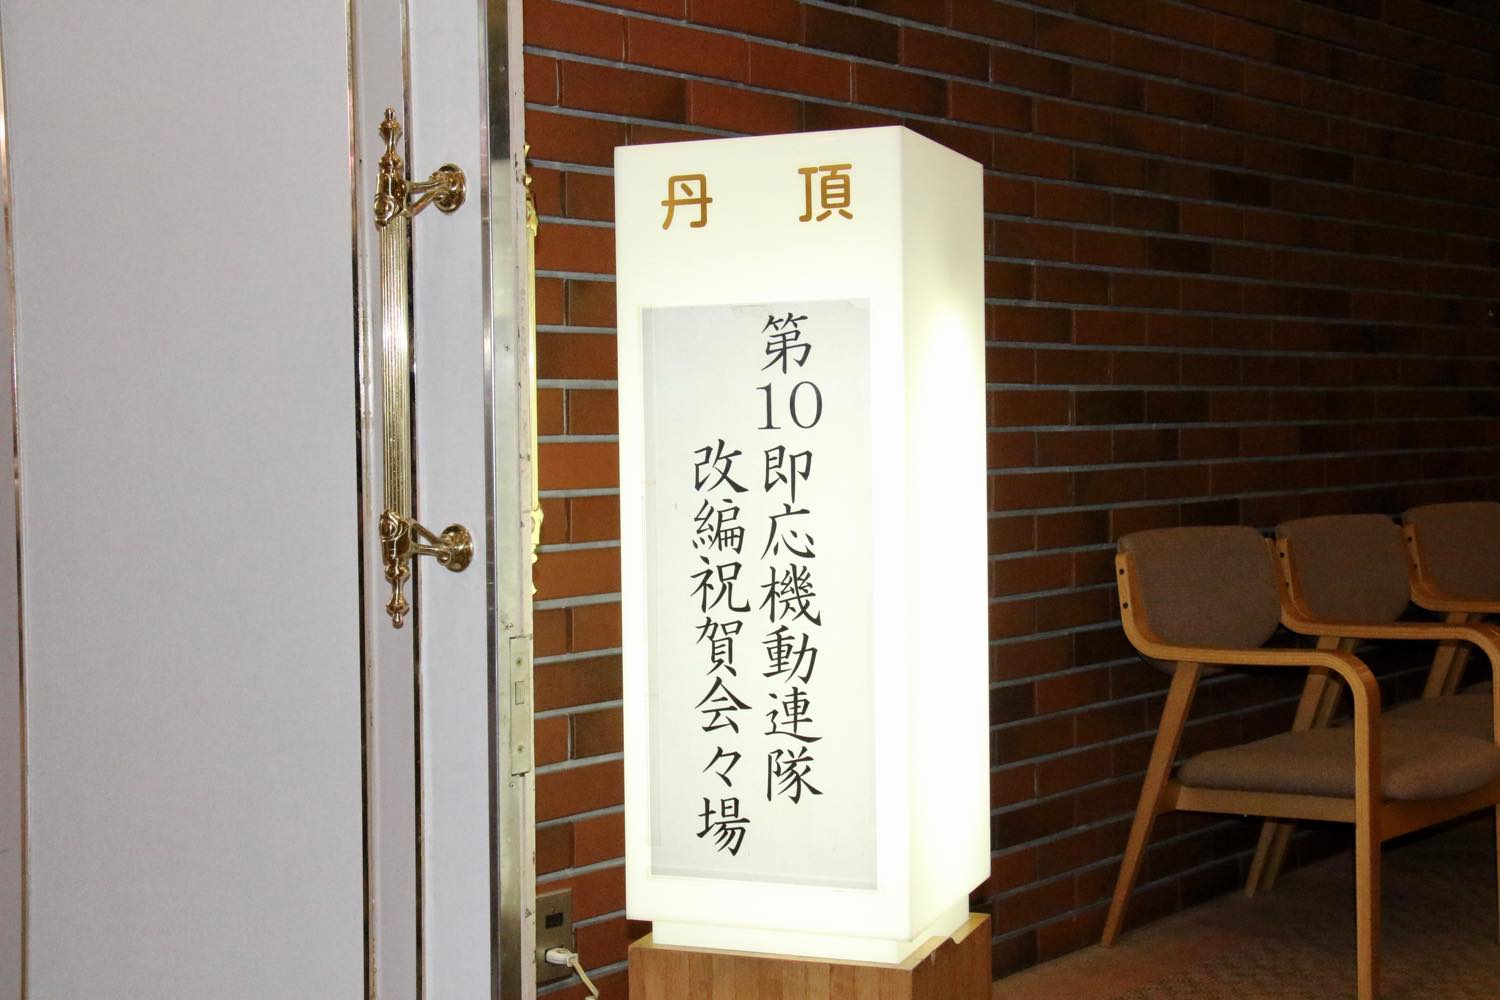 丹頂
第10即応機動連隊
改編祝賀会々場